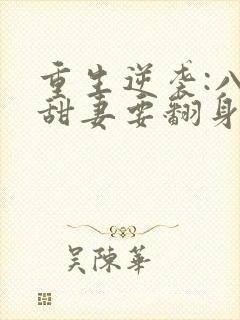 重生逆袭:八
甜妻要翻身
吴陈华